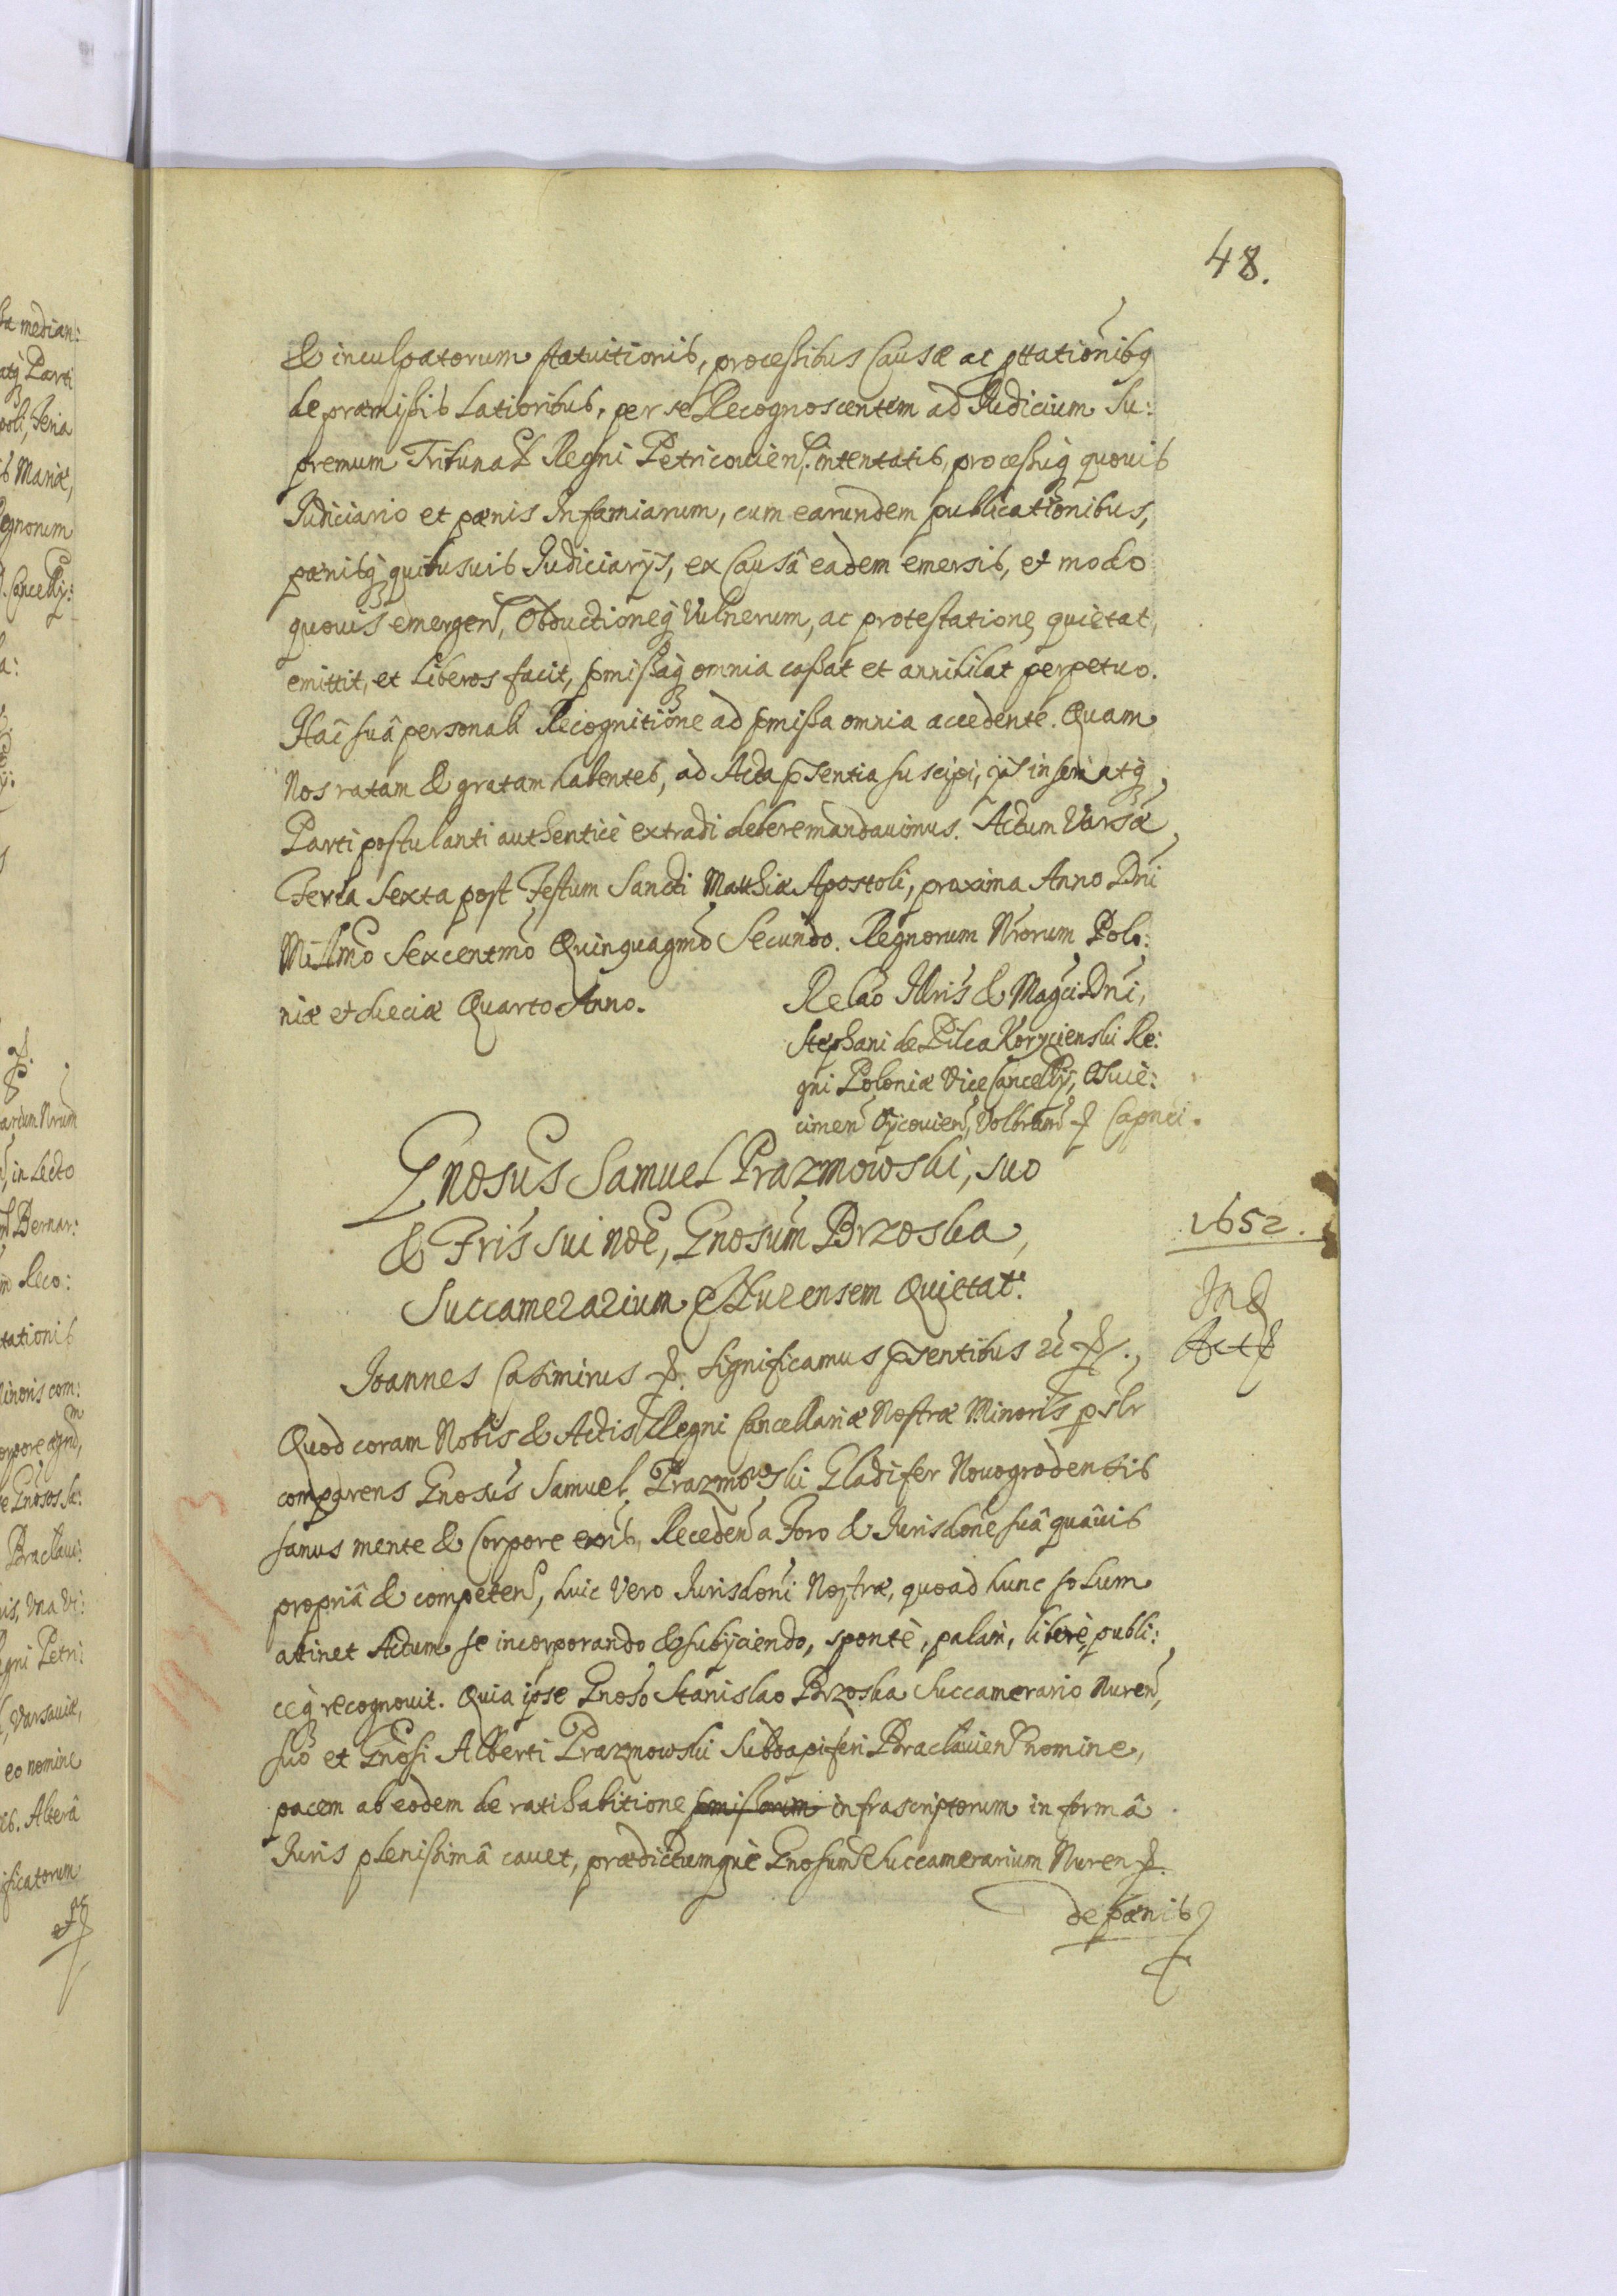 48.
& inculpatorum statuitionis, processibus Causæ ac pttationibq
de præmissis Latioribus, per se Recognoscentem ad Judicium Su:
premum Tribunal Regni Petricouien. intentatis, processuq quouis
Judiciario et pœnis Infamiarum, cum earundem publicationibus,
pœnibq quibusuis Judiciarijs, ex Causâ eadem emersis, et modo
quouis emergen, Obductioneq Vulnerum, ac protestatione quietat,
emittit, et liberos facit, pmissaq omnia cassat et annihilat perpetuo.
Hac suâ personali Recognitione ad pmissa omnia accedente. Quam
Nos ratam & gratam habentes, ad Acta psentia suscipi, ijs inseri atq
Parti postulanti authenticè extradi debere mandauimus. Actum Varsæ
Feria Sexta post Festum Sancti Matthiæ Apostoli, proxima Anno Dni
Millmo Sexcentmo Quinquagmo Secundo. Regnorum Nrorum Polo:
niæ et Sueciæ Quarto Anno.
Relao Illris & Magci Dni,
Stephani de Pilca Korycienski Re:
gni Poloniæ Vice Cancellrij, Osuie:
cimen Oycouien, Volbram & Capnei.
Gnosus Samuel Prazmowski, suo
& Fris sui noe, Gnosum Brzoska,
Succamerarium Nurensem Quietat.
1652.
Joannes Casimirus &. Significamus psentibus &.,
Quod coram Nobis & Actis Regni Cancellariæ Nostræ Minoris pslr
comparens Gnosus Samuel Prazmowski Gladifer Nouogrodensis
sanus mente & Corpore exns, Receden a Foro & Jurisdone suâ quâuis
propriâ & competen, huic Vero Jurisdoni Nostræ, quoad hunc solum
attinet Actum se incorporando & subijciendo, spontè, palàm, liberè publi:
ceq recognouit. Quia ipse Gnoso Stanislao Brzoska Succamerario Nuren,
suo et Gnosi Alberti Prazmowski Subdapiferi Braclauien nomine,
pacem ab eodem de ratihabitione pmissorum infrascriptorum in formâ
Juris plenissimâ cauet, prædictumque Gnosum Succamerarium Nuren &.
de pœnis